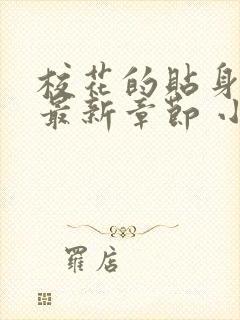 校花的貼身
最新章節 小
羅店